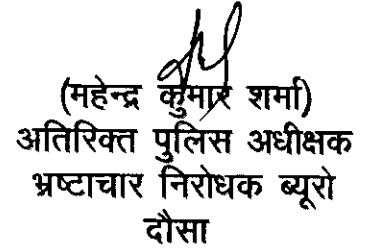 (महेन्द्र कुमार शर्मा)
अतिरिक्त पुलिस अधीक्षक
भ्रष्टाचार निरोधक ब्यूरो
दौसा